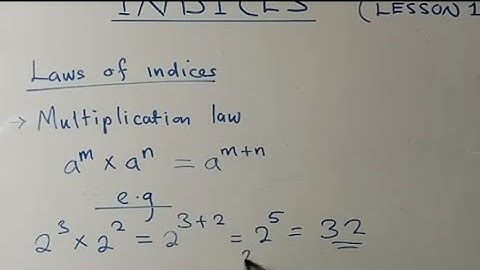 INDICES (LESSON 1
Laws of indices
→ Multiplication law
aᵐ × aⁿ = aᵐ⁺ⁿ
e.g
2³ × 2² = 2³⁺² = 2⁵ = 32